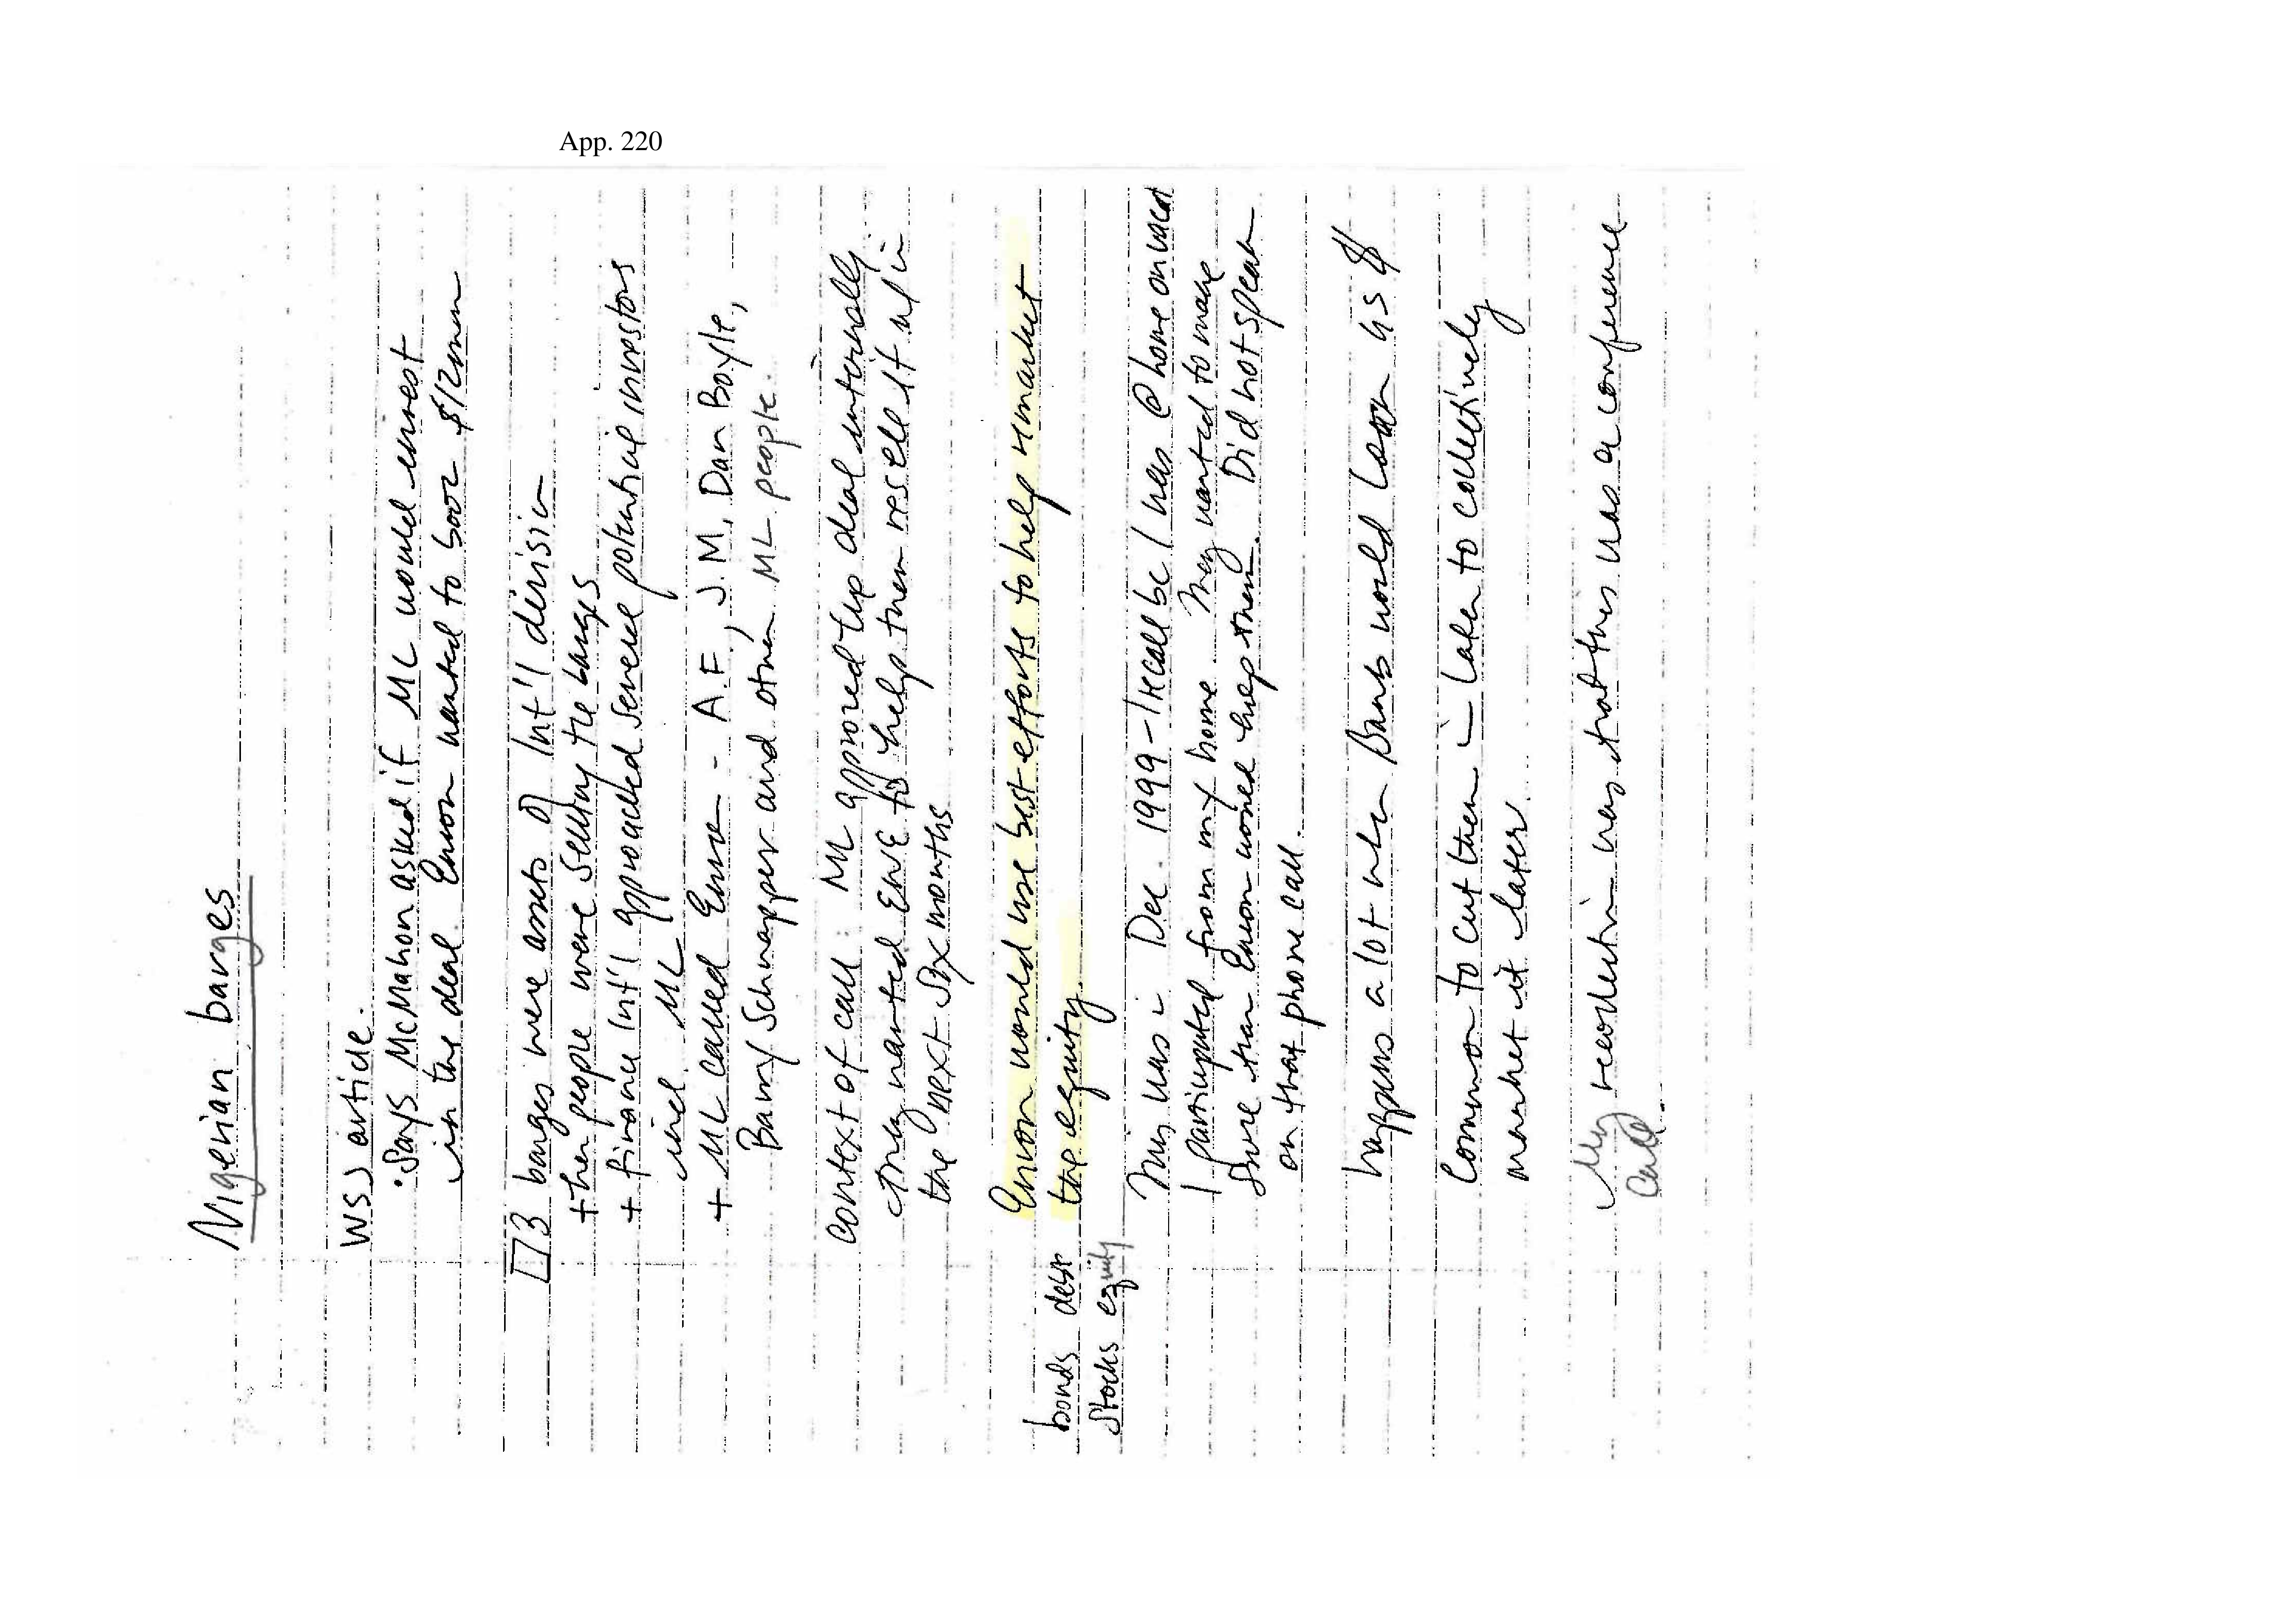 App. 220
Nigerian barges
WSJ article.
• Says McMahon asked if ML would invest
in the deal. Enron wanted to book $12mm
3 barges were assets of Int'l division
+ their people were selling the barges
+ finance Int'l approached several potential investors
incl. ML
+ ML called Enron - A.F., J.M, Dan Boyle,
Barry Schnapper and other ML people.
context of call: ML approved this deal internally
They wanted ENE to help them resell it w/in
the next six months
Enron would use best efforts to help remarket
the equity.
bonds debt
stocks equity
This was in Dec. 1999 - I recall bc I was @ home on vacat
I participated from my home. They wanted to make
sure that Enron would help them. Did not speak
on that phone call.
happens a lot when Banks would loan us $
Common to cut them in later to collectively
market it later.
My recollection was that this was a conference
call.